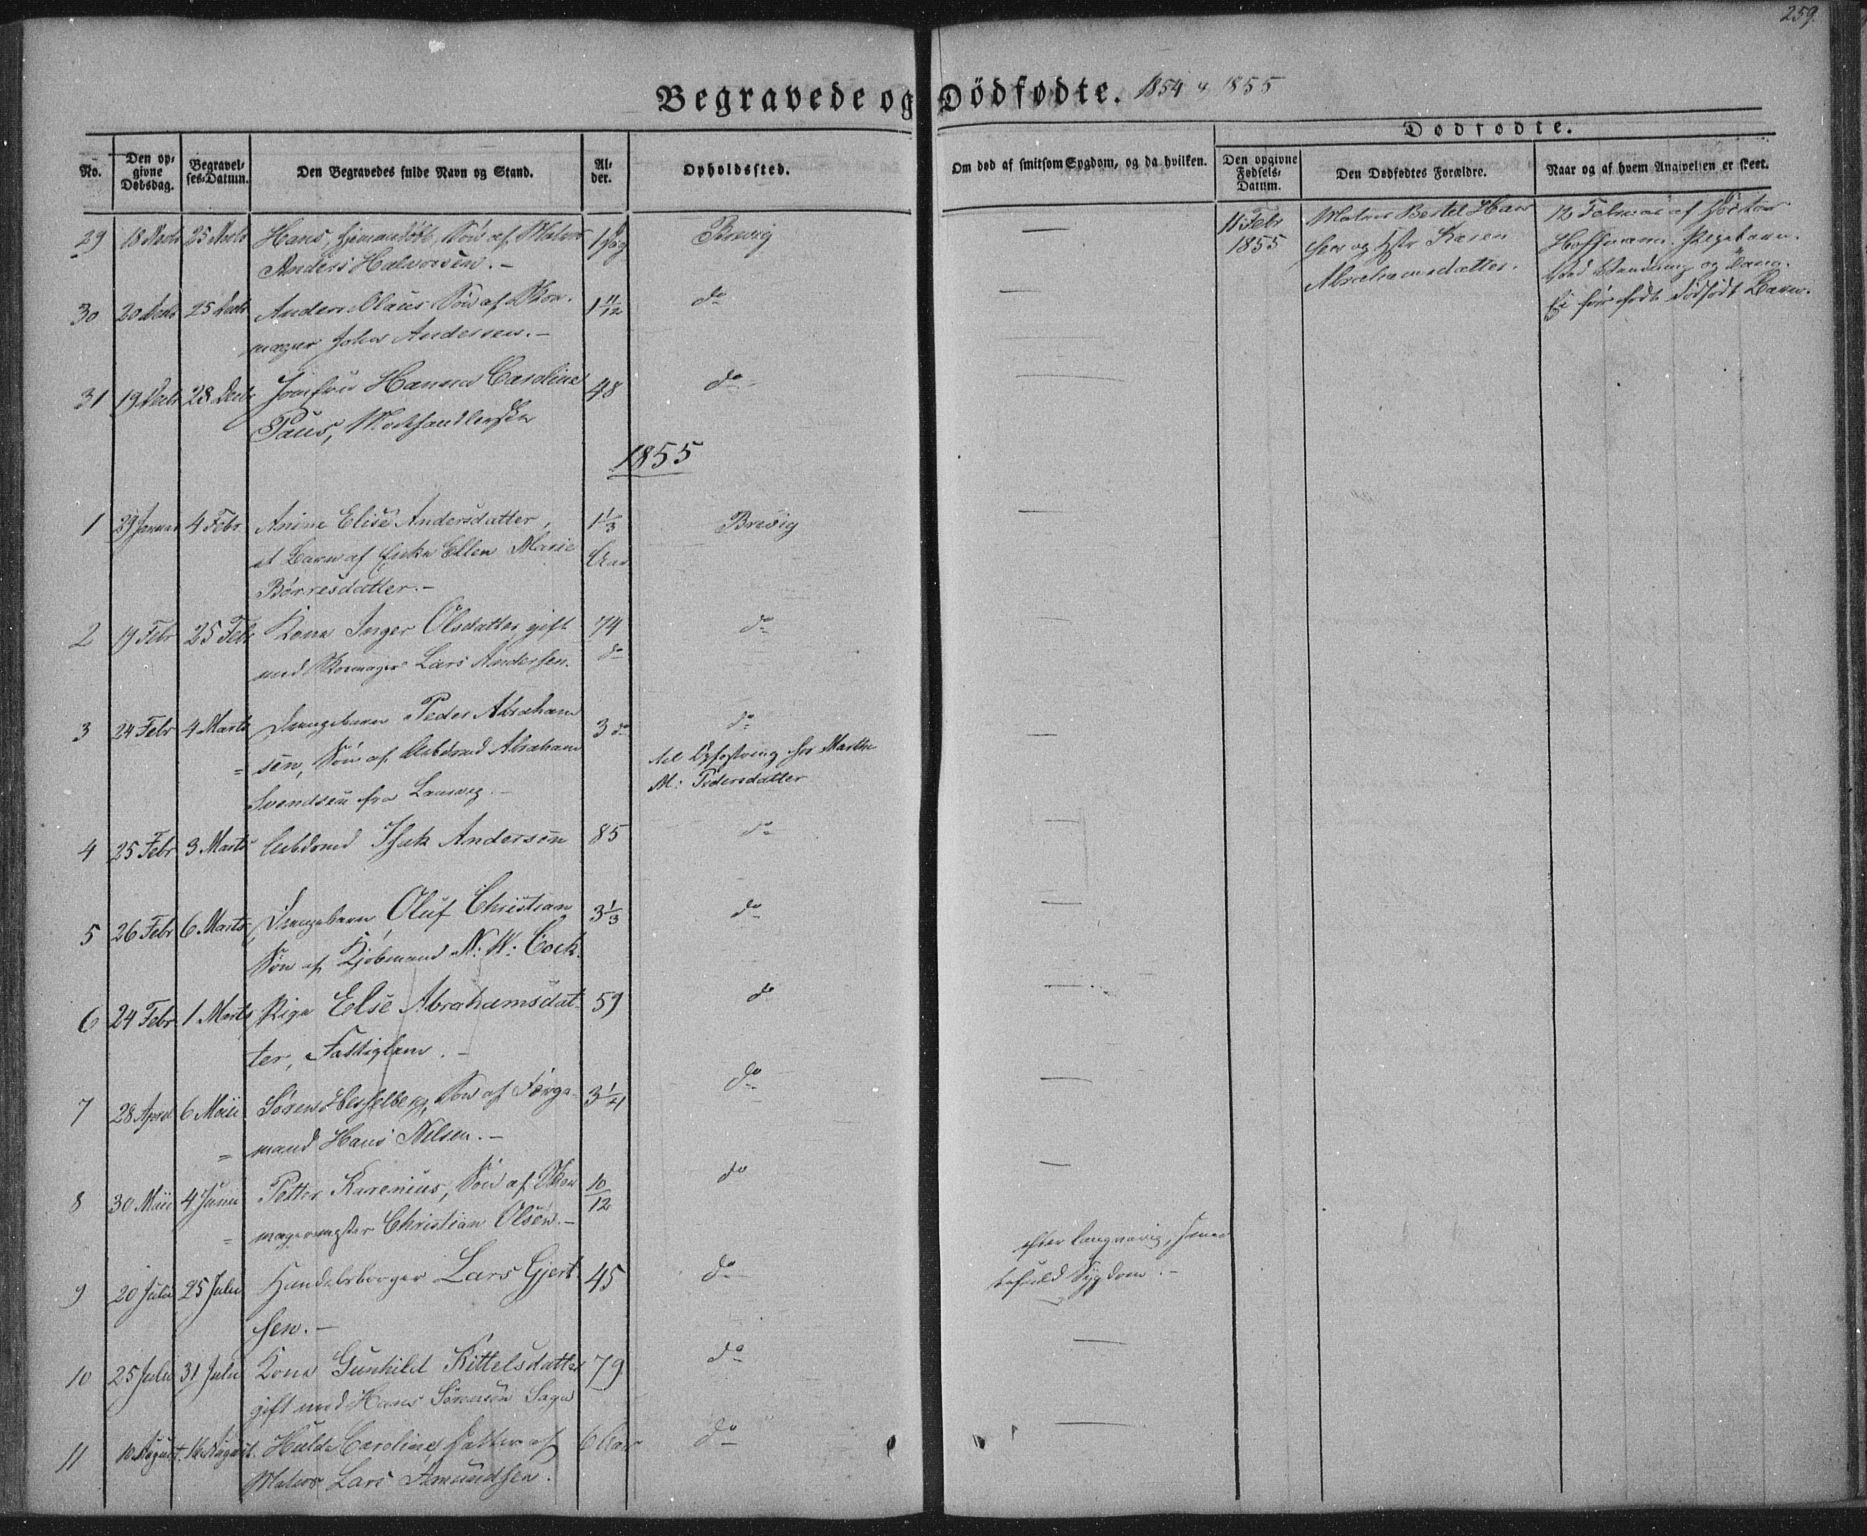 259.
Begravede og Dödfødte. 1854 & 1855
Dødfødte.
No.
Den opgivne Dødsdag.
Begravelses-Datum.
Den Begravedes fulde Navn og Stand.
Alder.
Opholdssted.
Om død af smitsom Sygdom, og da hvilken.
Den opgivne Fødsels-Datum.
Den Dødfødtes Forældre.
Naar og af hvem Angivelsen er skeet.
29 18 Decbr 25 Decbr Hans, Søn af Matros 1 Dag Brevig — 11 Febr Matros Bertel Han 12 Februar af Doctor
Anders Halvorsen. — 1855 sen og Hstr Karen Hoffmann. Pigebarn.
Abrahamsdatter. og
30 20 Decbr 25 Decbr Anders Olaus Søn af Skoe 1 11/12 do — født dødfødt Barn.
mager John Andersen. —
31 19 Decbr 28 Decbr Jomfru Hanna Caroline 48 do —
Paus, Modehandlerske
1855
1 29 Januar 4 Febr Anine Elise Andersdatter, 1 1/3 Brevig —
et Barn af Enke Ellen Marie Aar
Börresdatter. —
2 19 Febr 25 Febr Kone Inger Olsdatter, gift 74 do —
med Skomager Lars Andersen. do
3 24 Febr 4 Marts Drengebarn Peder Abraham 3 do do —
sen, Søn af Arbdsmd Abraham til Opfostring hos Marthe
Svendsen fra Laurvig. — M: Pedersdatter
4 25 Febr 3 Marts Arbdsmd Isak Andersen 85 do —
5 26 Febr 6 Marts Drengebarn Oluf Christian 3 1/3 do —
Søn af Kjøbmand N: W: Cock.
6 24 Febr 1 Marts Pige Else Abrahamsdat- 59 do —
ter, Fattiglem. —
7 28 April 6 Maii Søren Hesselberg, Søn af Færge- 3 1/4 do —
mand Hans Nilsen. —
8 30 Maii 4 Juni Petter Karenius, Søn af Skoe 10/12 do —
magermester Christian Olsen. —
9 20 Juli 25 Juli Handelsborger Lars Gjert 45 do efter langvarig, smer
sen. — tefuld Sygdom. —
10 25 Juli 31 Juli Kone Gunhild Kittelsdatter 79 do —
gift med Hans Sørensen Saga
11 10 August. 16 August. Hulda Caroline, Datter af 6 Aar do —
Matros Lars Amundsen.